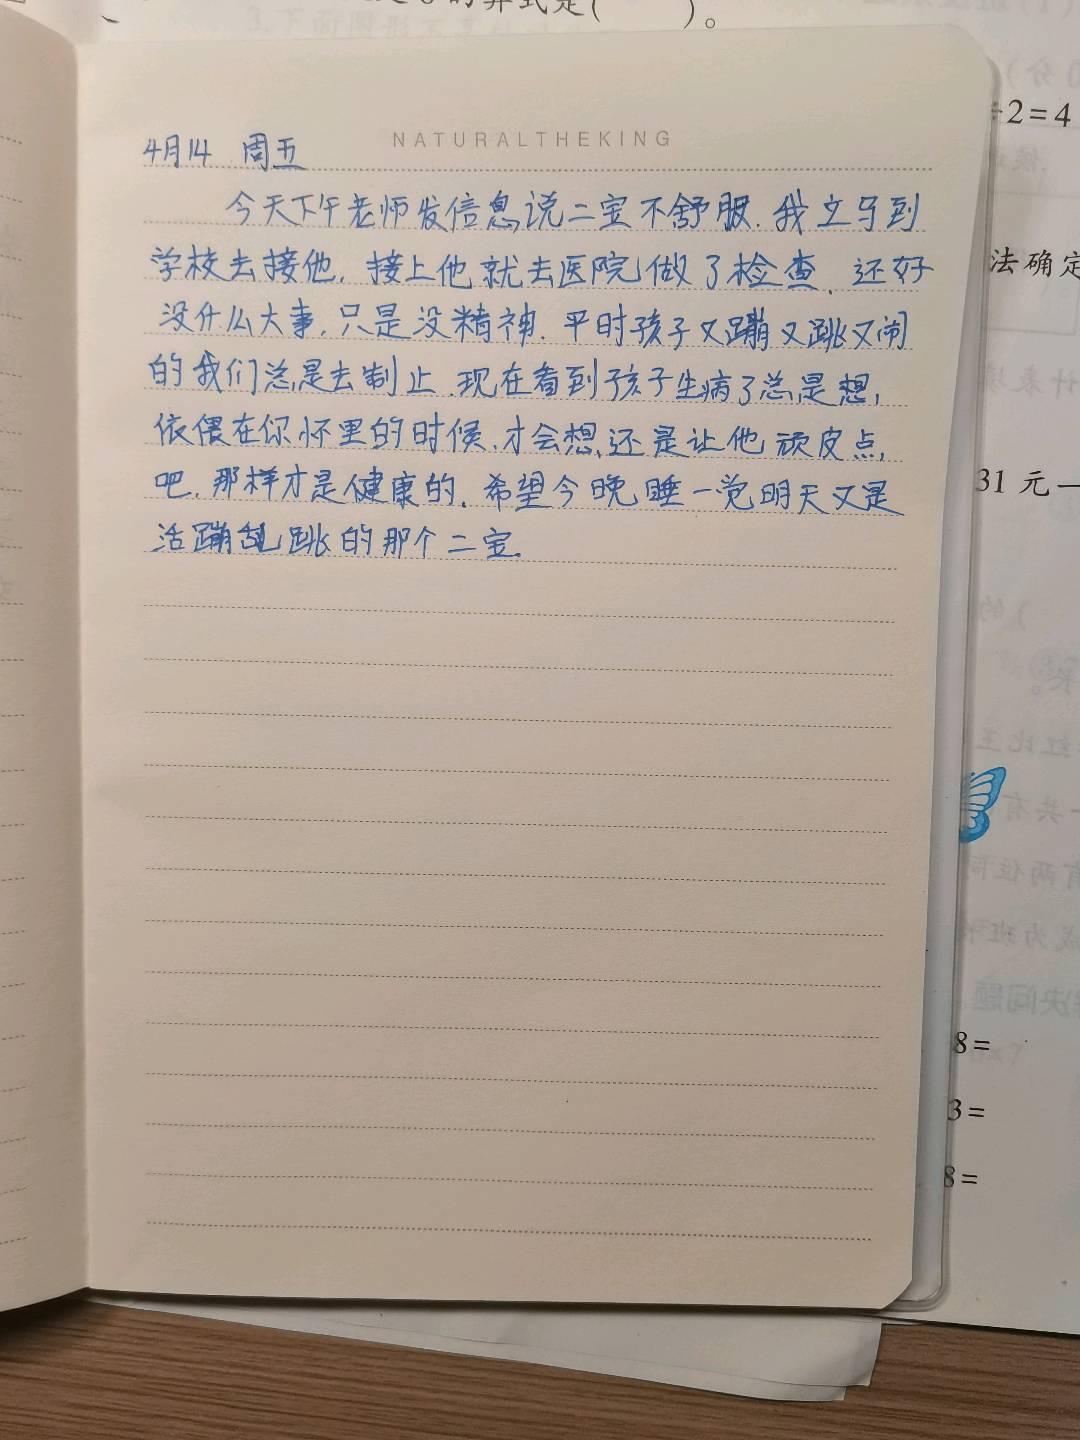 的算式是(    )。
NATURALTHEKING
4月14 周五
今天下午老师发信息说二宝不舒服.我立马到
学校去接他.接上他就去医院做了检查.还好
没什么大事.只是没精神.平时孩子又蹦又跳又闹
的我们总是去制止.现在看到孩子生病了总是想,
依偎在你怀里的时候.才会想还是让他顽皮点,
吧.那样才是健康的.希望今晚睡一觉明天又是
活蹦乱跳的那个二宝.
÷2=4
法确定
31 元
8=
3=
8=